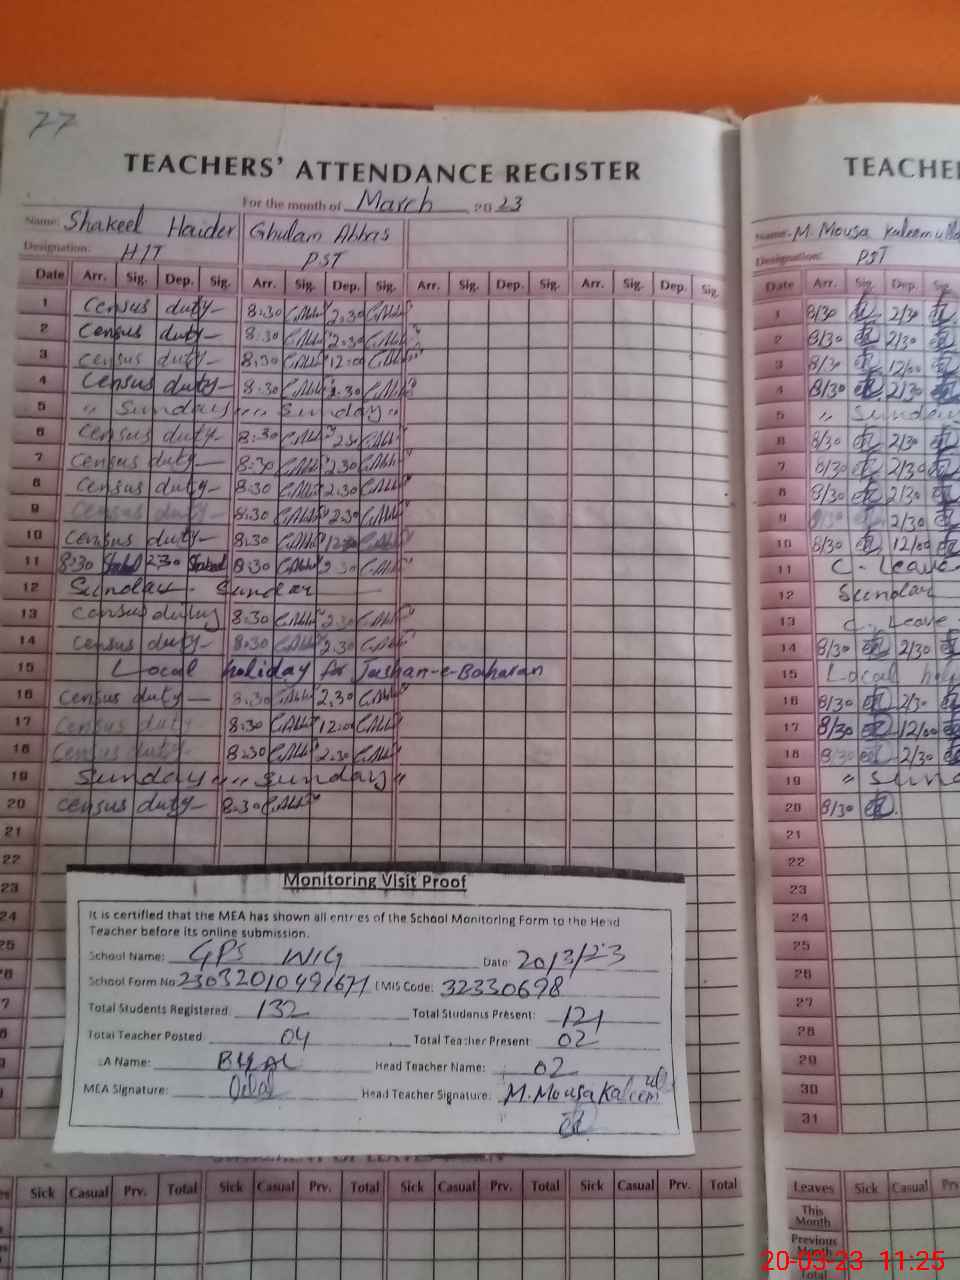 77
TEACHERS' ATTENDANCE REGISTER
For the month of March 2023
Name: Shakeel Haider Ghulam Abbas
Designation: HIT PST
Date Arr. Sig. Dep. Sig. Arr. Sig. Dep. Sig. Arr. Sig. Dep. Sig. Arr. Sig. Dep. Sig.
1 Census duty 8:30 2:30
2 Census duty 8:30 2:30
3 Census duty 8:30 12:00
4 Census duty 8:30 2:30
5 " Sunday " " Sunday "
6 Census duty 8:30 2:30
7 Census duty 8:30 2:30
8 Census duty 8:30 2:30
9 Census duty 8:30 2:30
10 Census duty 8:30
11 8:30 2:30 8:30 2:30
12 Sunday - Sunday
13 Census duty 8:30 2:30
14 Census duty 8:30 2:30
15 Local holiday for Jashan-e-Baharan
16 Census duty 8:30 2:30
17 Census duty 8:30 12:00
18 Census duty 8:30 2:30
19 Sunday " " Sunday "
20 Census duty 8:30
21
22
23
24
25
Monitoring Visit Proof
It is certified that the MEA has shown all entries of the School Monitoring Form to the Head
Teacher before its online submission.
School Name: GPS Date: 20/3/23
School Form No EMIS Code: 32330698
Total Students Registered: 132 Total Students Present: 121
Total Teacher Posted 04 Total Teacher Present: 02
Name: Head Teacher Name: 02
MEA Signature: Head Teacher Signature: M. Mousa Kaleem
Sick Casual Prv. Total Sick Casual Prv. Total Sick Casual Prv. Total Sick Casual Prv. Total
TEACHE
Name: M. Mousa Kaleemulla
Designation: PST
Date Arr. Sig. Dep. Sig.
1 8/30 2/30
2 8/30 2/30
3 8/30 12/00
4 8/30 2/30
5 " Sunday
6 8/30 2/30
7 8/30 2/30
8 8/30 2/30
9 8/30 2/30
10 8/30 12/00
11 C. Leave
12 Sunday
13 C. Leave
14 8/30 2/30
15 Local
16 8/30 2/30
17 8/30 12/00
18 8/30 2/30
19 "
20 8/30
21
22
23
24
25
26
27
28
29
30
31
Leaves Sick Casual
This
Month
Previous
Month
Total
20-03-23 11:25